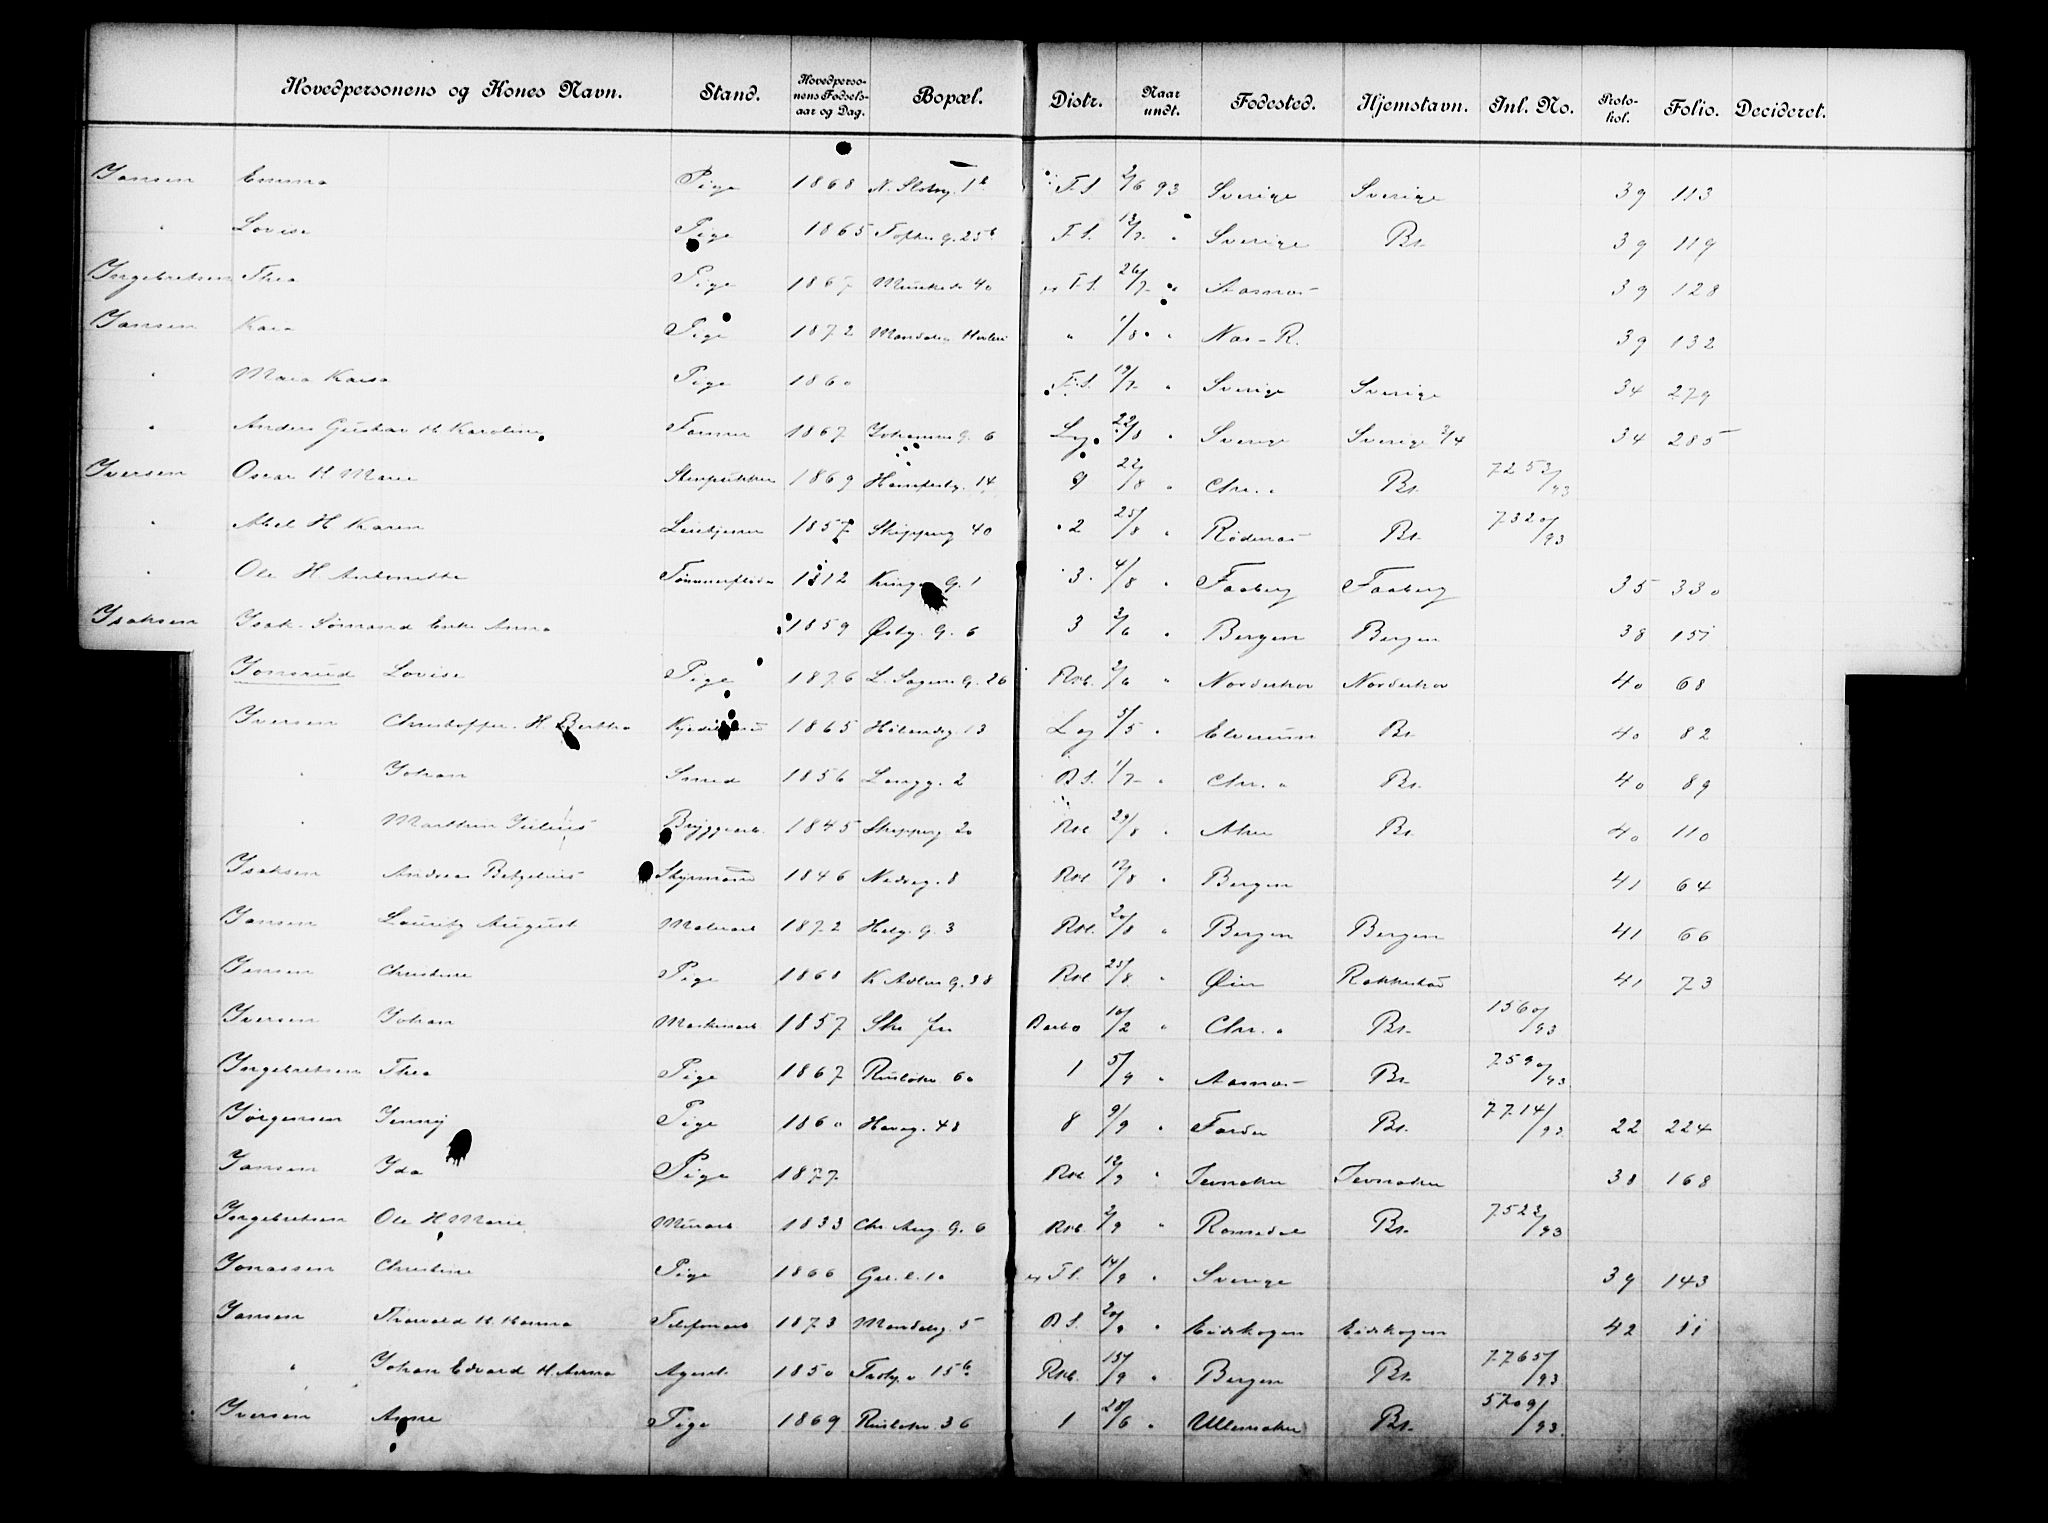 Hovedpersonens og Kones Navn. Stand. Hovedperso-nens Fødsels-aar og Dag. Bopæl. Distr. Naar undt. Fødested. Hjemstavn. Inl. No. Proto-kol. Folio. Decideret.
Jansen Emma Pige 1868 N. Slotsg. 1b F.S. 2/6 93 Sverige Sverige 39 113
" Lovise Pige 1865 Toftes G. 25b F.S. 12/7 " Sverige Bs. 39 119
Ingebretsen Thea Pige 1867 Munkeds 40 F.S. 26/7 " Aasnæs 39 128
Jansen Kaia Pige 1872 " 1/8 " Næs - R. 39 132
" Maia Kaisa Pige 1860 F.S. 19/7 " Sverige Sverige 34 279
" Anders Gustav H Karoline 1867 Johannes G. 6 Lg. 22/8 " Sverige Sverige 34 285
Iversen Oscar H Marie Stenpukker 1869 Hammersbg. 14 9 22/8 " Chr.a Bs. 7253/93
" Abel H Karen 1857 Skipperg 40 2 25/8 " Rødenæs Bs. 7320/93
" Ole H Antonette 1812 Kings G. 1 3. 4/8 " Faaberg Faaberg 35 330
Isaksen Isak Enke Anna 1859 Østg. G. 6 3 2/6 " Bergen Bergen 38 151
Jonsrud Lovise Pige 1876 L. Sagene G. 26 Rkt. 2/6 " Norderhov Norderhov 40 68
Iversen Christoffer H. Berthe 1865 Hølandsg. 13 Lg 5/5 " Elverum Bs. 40 82
" Johan Smed 1856 Langg. 2 B.S. 1/7 " Chr.a Bs. 40 89
" Marthin Julius Bryggearb. 1845 Skipperg 20 Rkt 29/8 " Aker Bs. 40 110
Isaksen Andreas Styrmand 1846 Nedreg. 8 Rkt 12/8 " Bergen 41 64
Jansen Lauritz August Malerarb 1872 Helg. G. 3 Rkt. 20/8 " Bergen Bergen 41 66
Jensen Christine Pige 1868 K. Adlers G. 38 Rkt 23/8 " Øier Rakkestad 41 73
Iversen Johan Maskinarb 1857 Barbo 10/2 " Chr.a Bs. 1560/93
Ingebretsen Thea Pige 1867 Ruseløkv 60 1 5/9 " Aasnæs Bs. 7590/93
Jørgensen Jenny Pige 1860 Haveg. 48 8 9/9 " Førde Bs. 7714/93 22 224
Jansen Ida Pige 1877 Rkt 12/9 " Jevnaker Jevnaker 38 168
Ingebretsen Ole H Marie Murarb 1833 Chr. Aug. G. 6 Rkt. 2/9 " Romsdal Bs. 7522/93
Jonassen Christine Pige 1866 F.S. 14/9 " Sverige 39 143
Jansen Thorvald H Hanna Telefonarb 1873 Mandalsg. 5 B.S. 20/9 " Eidskogen Eidskogen 42 11
" Johan Edvard H. Anna Agent 1850 15b Rkt. 13/9 " Bergen Bs. 7765/93
Iversen Anne Pige 1869 Ruseløkv 36 1 28/6 " Ullensaker Bs. 5709/93